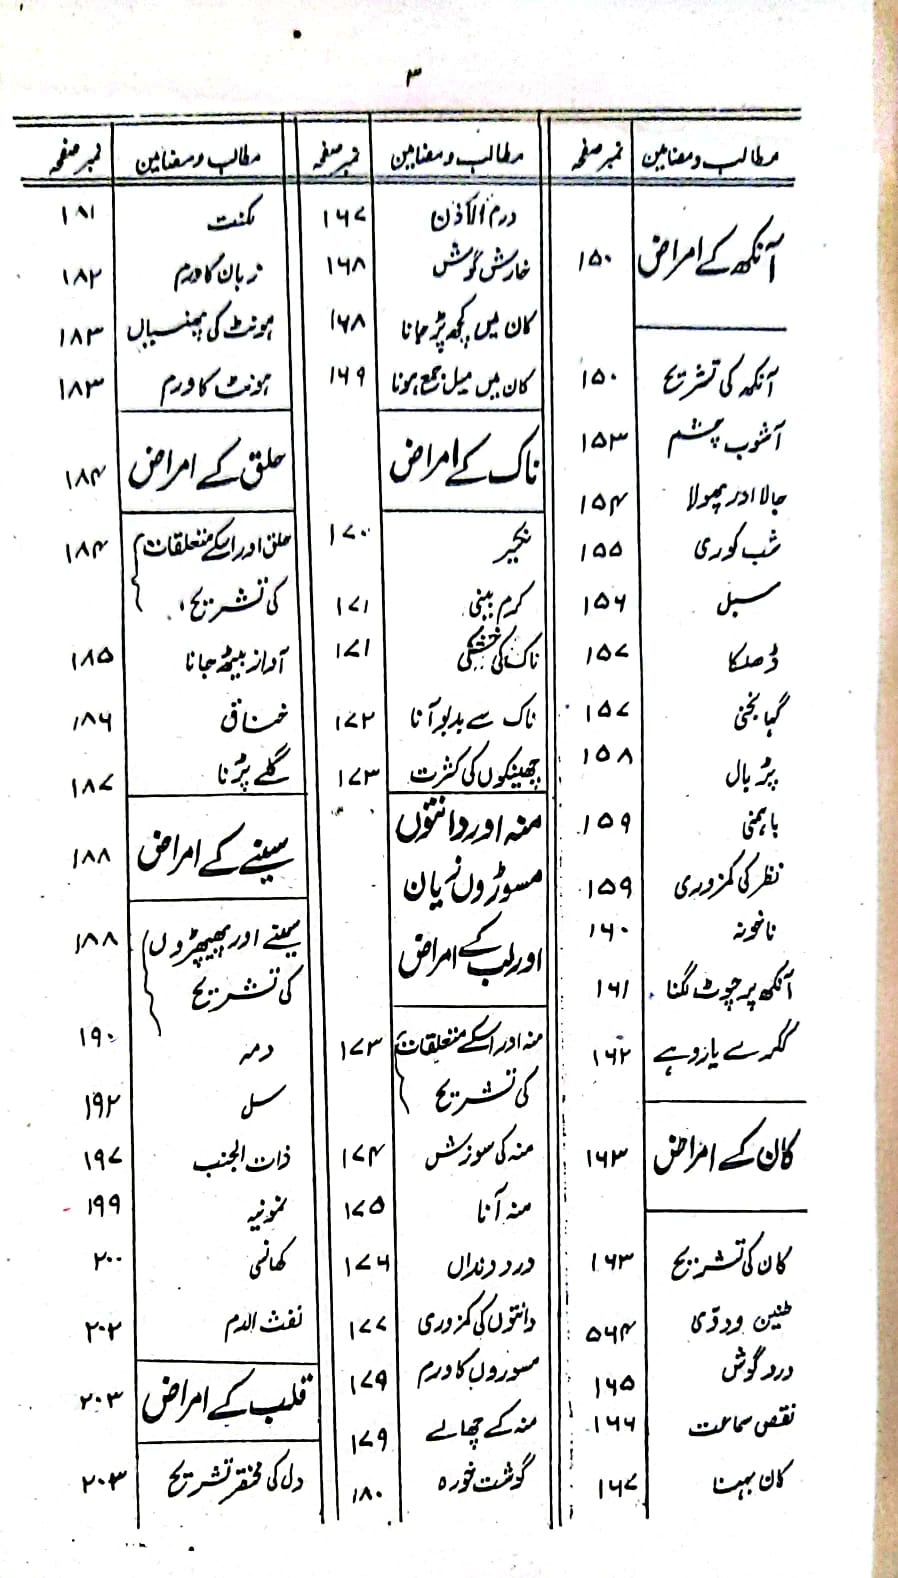 ۳
مطالب و مضامین
نمبر صفحہ
آنکھ کے امراض ۱۵۰
آنکھ کی تشریح ۱۵۰
آشوب چشم ۱۵۳
جالا اور پھولا ۱۵۴
شب کوری ۱۵۵
سبل ۱۵۶
ڈھلکا ۱۵۷
گہا بخنی ۱۵۷
پڑ بال ۱۵۸
باہمنی ۱۵۹
نظر کی کمزوری ۱۵۹
ناخونہ ۱۶۰
آنکھ پر چوٹ لگنا ۱۶۱
ککرے یا روہے ۱۶۲
کان کے امراض ۱۶۳
کان کی تشریح ۱۶۳
طنین ودوّی ۵۶۴
درد گوش ۱۶۵
نقص سماعت ۱۶۶
کان بہنا ۱۶۷
مطالب و مضامین
نمبر صفحہ
درم الاذن ۱۶۷
خارش گوش ۱۶۸
کان میں کچھ پڑ جانا ۱۶۸
کان میں میل جمع ہونا ۱۶۹
ناک کے امراض
نکیر ۱۷۰
کرم بینی ۱۷۱
ناک کی خشکی ۱۷۱
ناک سے بدبو آنا ۱۷۲
چھینکوں کی کثرت ۱۷۳
منہ اور دانتوں
مسوڑوں زبان
اور لب کے امراض
منہ اور اسکے متعلقات ۱۷۳
کی تشریح
منہ کی سوزش ۱۷۴
منہ آنا ۱۷۵
درد دنداں ۱۷۶
دانتوں کی کمزوری ۱۷۷
مسوروں کا ورم ۱۷۹
منہ کے چھالے ۱۷۹
گوشت خورہ ۱۸۰
مطالب و مضامین
نمبر صفحہ
لکنت ۱۸۱
زبان کا ورم ۱۸۲
ہونٹ کی پھنسیاں ۱۸۳
ہونٹ کا ورم ۱۸۳
حلق کے امراض ۱۸۴
حلق اور اسکے متعلقات ۱۸۴
کی تشریح
آواز بیٹھ جانا ۱۸۵
خناق ۱۸۶
گلے پڑنا ۱۸۷
سینے کے امراض ۱۸۸
سینے اور پھیپھڑوں ۱۸۸
کی تشریح
دمہ ۱۹۰
سل ۱۹۲
ذات الجنب ۱۹۷
نمونیہ ۱۹۹
کھانسی ۲۰۰
نفث الدم ۲۰۲
قلب کے امراض ۲۰۳
دل کی مختصر تشریح ۲۰۳